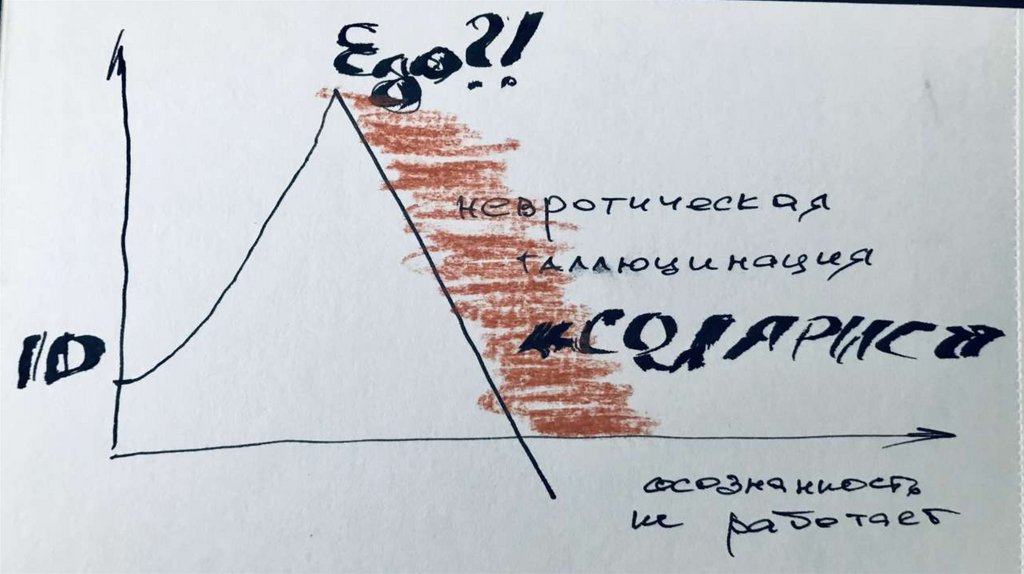 Eдo?!
невротическая
галлюцинация
ID
«СОЛЯРИС»
осознанность
не работает